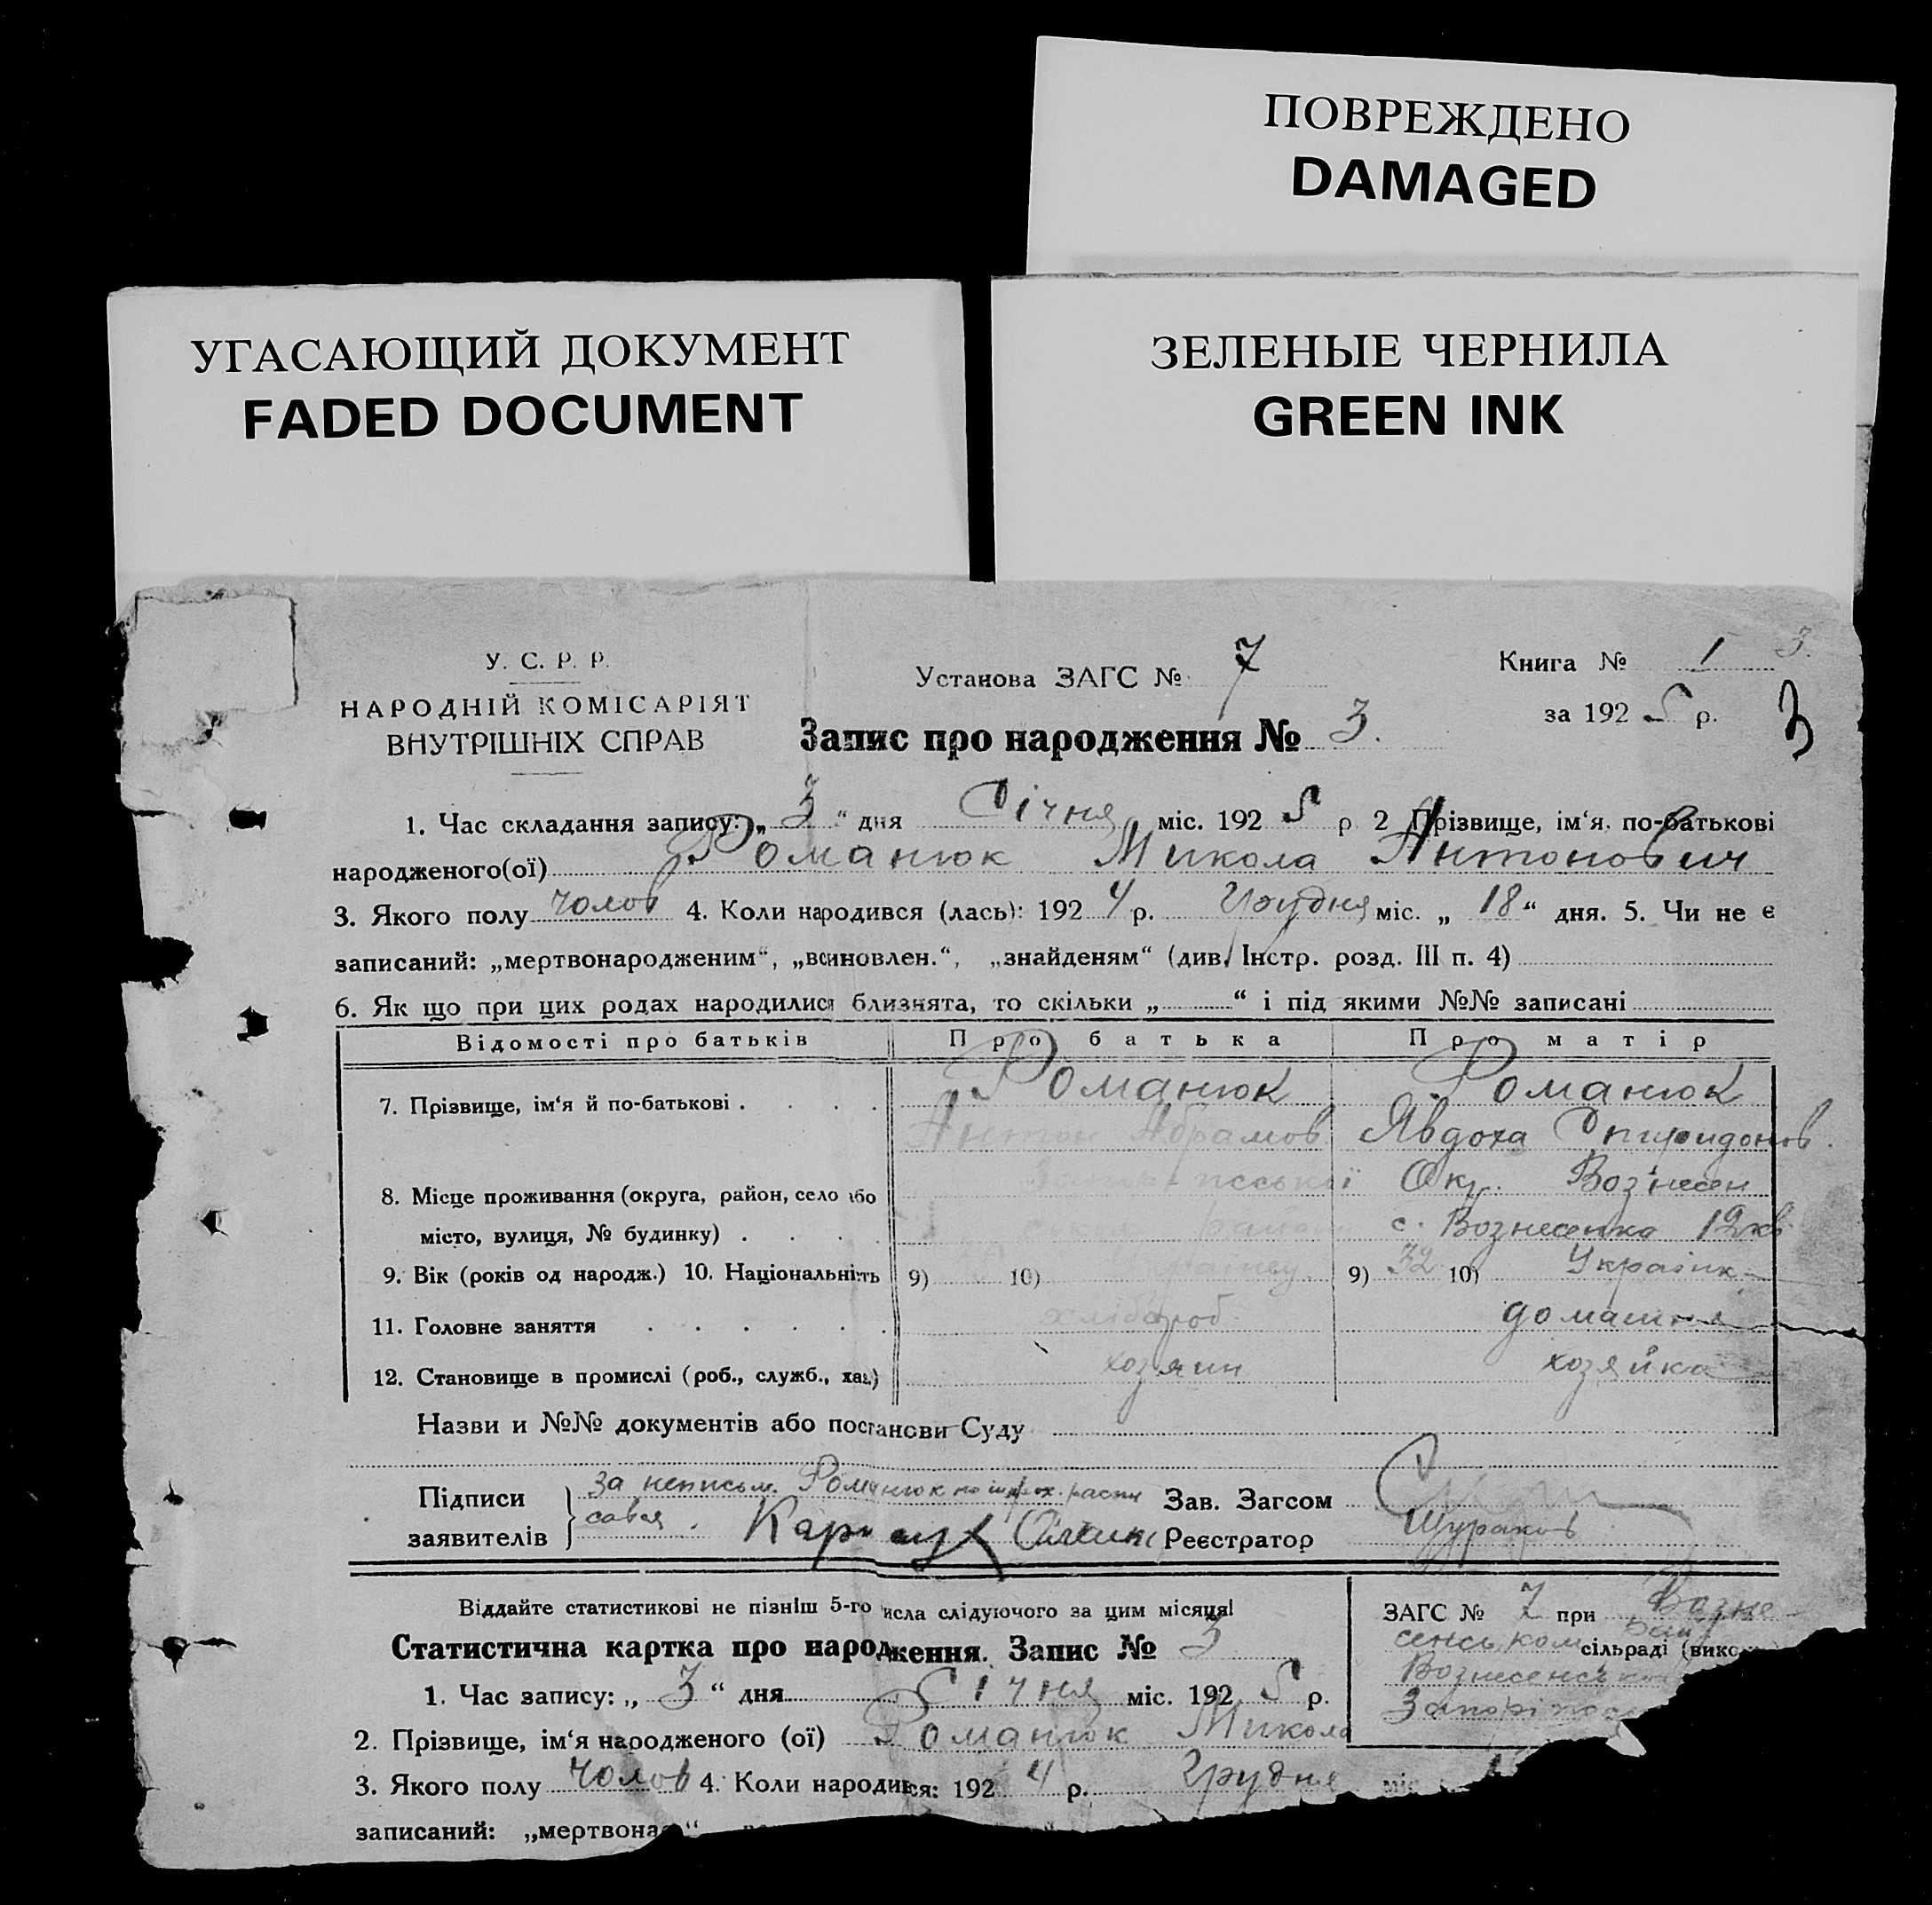 ПОВРЕЖДЕНО
DAMAGED
УГАСАЮЩИЙ ДОКУМЕНТ
FADED DOCUMENT
ЗЕЛЕНЫЕ ЧЕРНИЛА
GREEN INK
У. С. Р. Р.
НАРОДНІЙ КОМІСАРІЯТ
ВНУТРІШНІХ СПРАВ
Установа ЗАГС № 7
Книга № 1 3.
за 192 5 р. 3
Запис про народження № 3.
1. Час складання запису: „ 3 “ дня Січня міс. 192 5 р 2 Прізвище, ім‘я, по-батькові
народженого(ої) Романюк Микола Антонович
3. Якого полу чолов 4. Коли народився (лась): 192 4 р. Грудня міс. „ 18 “ дня. 5. Чи не є
записаний: „мертвонародженим“, „всиновлен.“, „знайденям“ (див. Інстр. розд. III п. 4)
6. Як що при цих родах народилися близнята, то скільки „ “ і під якими №№ записані
Відомості про батьків Про батька Про матір
7. Прізвище, ім‘я й по-батькові . . . . Романюк Романюк
Антон Абрамов. Явдоха Спиридонов.
8. Місце проживання (округа, район, село або Окр. Вознесен
місто, вулиця, № будинку) . . . . района с. Вознесенка 12 кв
9. Вік (років од народж.) 10. Національність 9) 10) 9) 32 10) Українк
11. Головне заняття . . . . . . хлібороб домашня
12. Становище в промислі (роб., служб., хаз.) хозяин хозяйка
Назви и №№ документів або постанови Суду
Підписи за неписьм. Романюк Зав. Загсом
заявителів Реєстратор Щураков
Віддайте статистикові не пізніш 5-го числа слідуючого за цим місяця!
Статистична картка про народження. Запис № 3
1. Час запису: „ 3 “ дня Січня міс. 192 5 р.
2. Прізвище, ім‘я народженого (ої) Романюк Микола
3. Якого полу чолов 4. Коли народився: 192 4 р. Грудня міс
записаний: „мертвона
ЗАГС № 7 при Возне
сенськом сільраді (вико
Вознесенськ
Запоріж